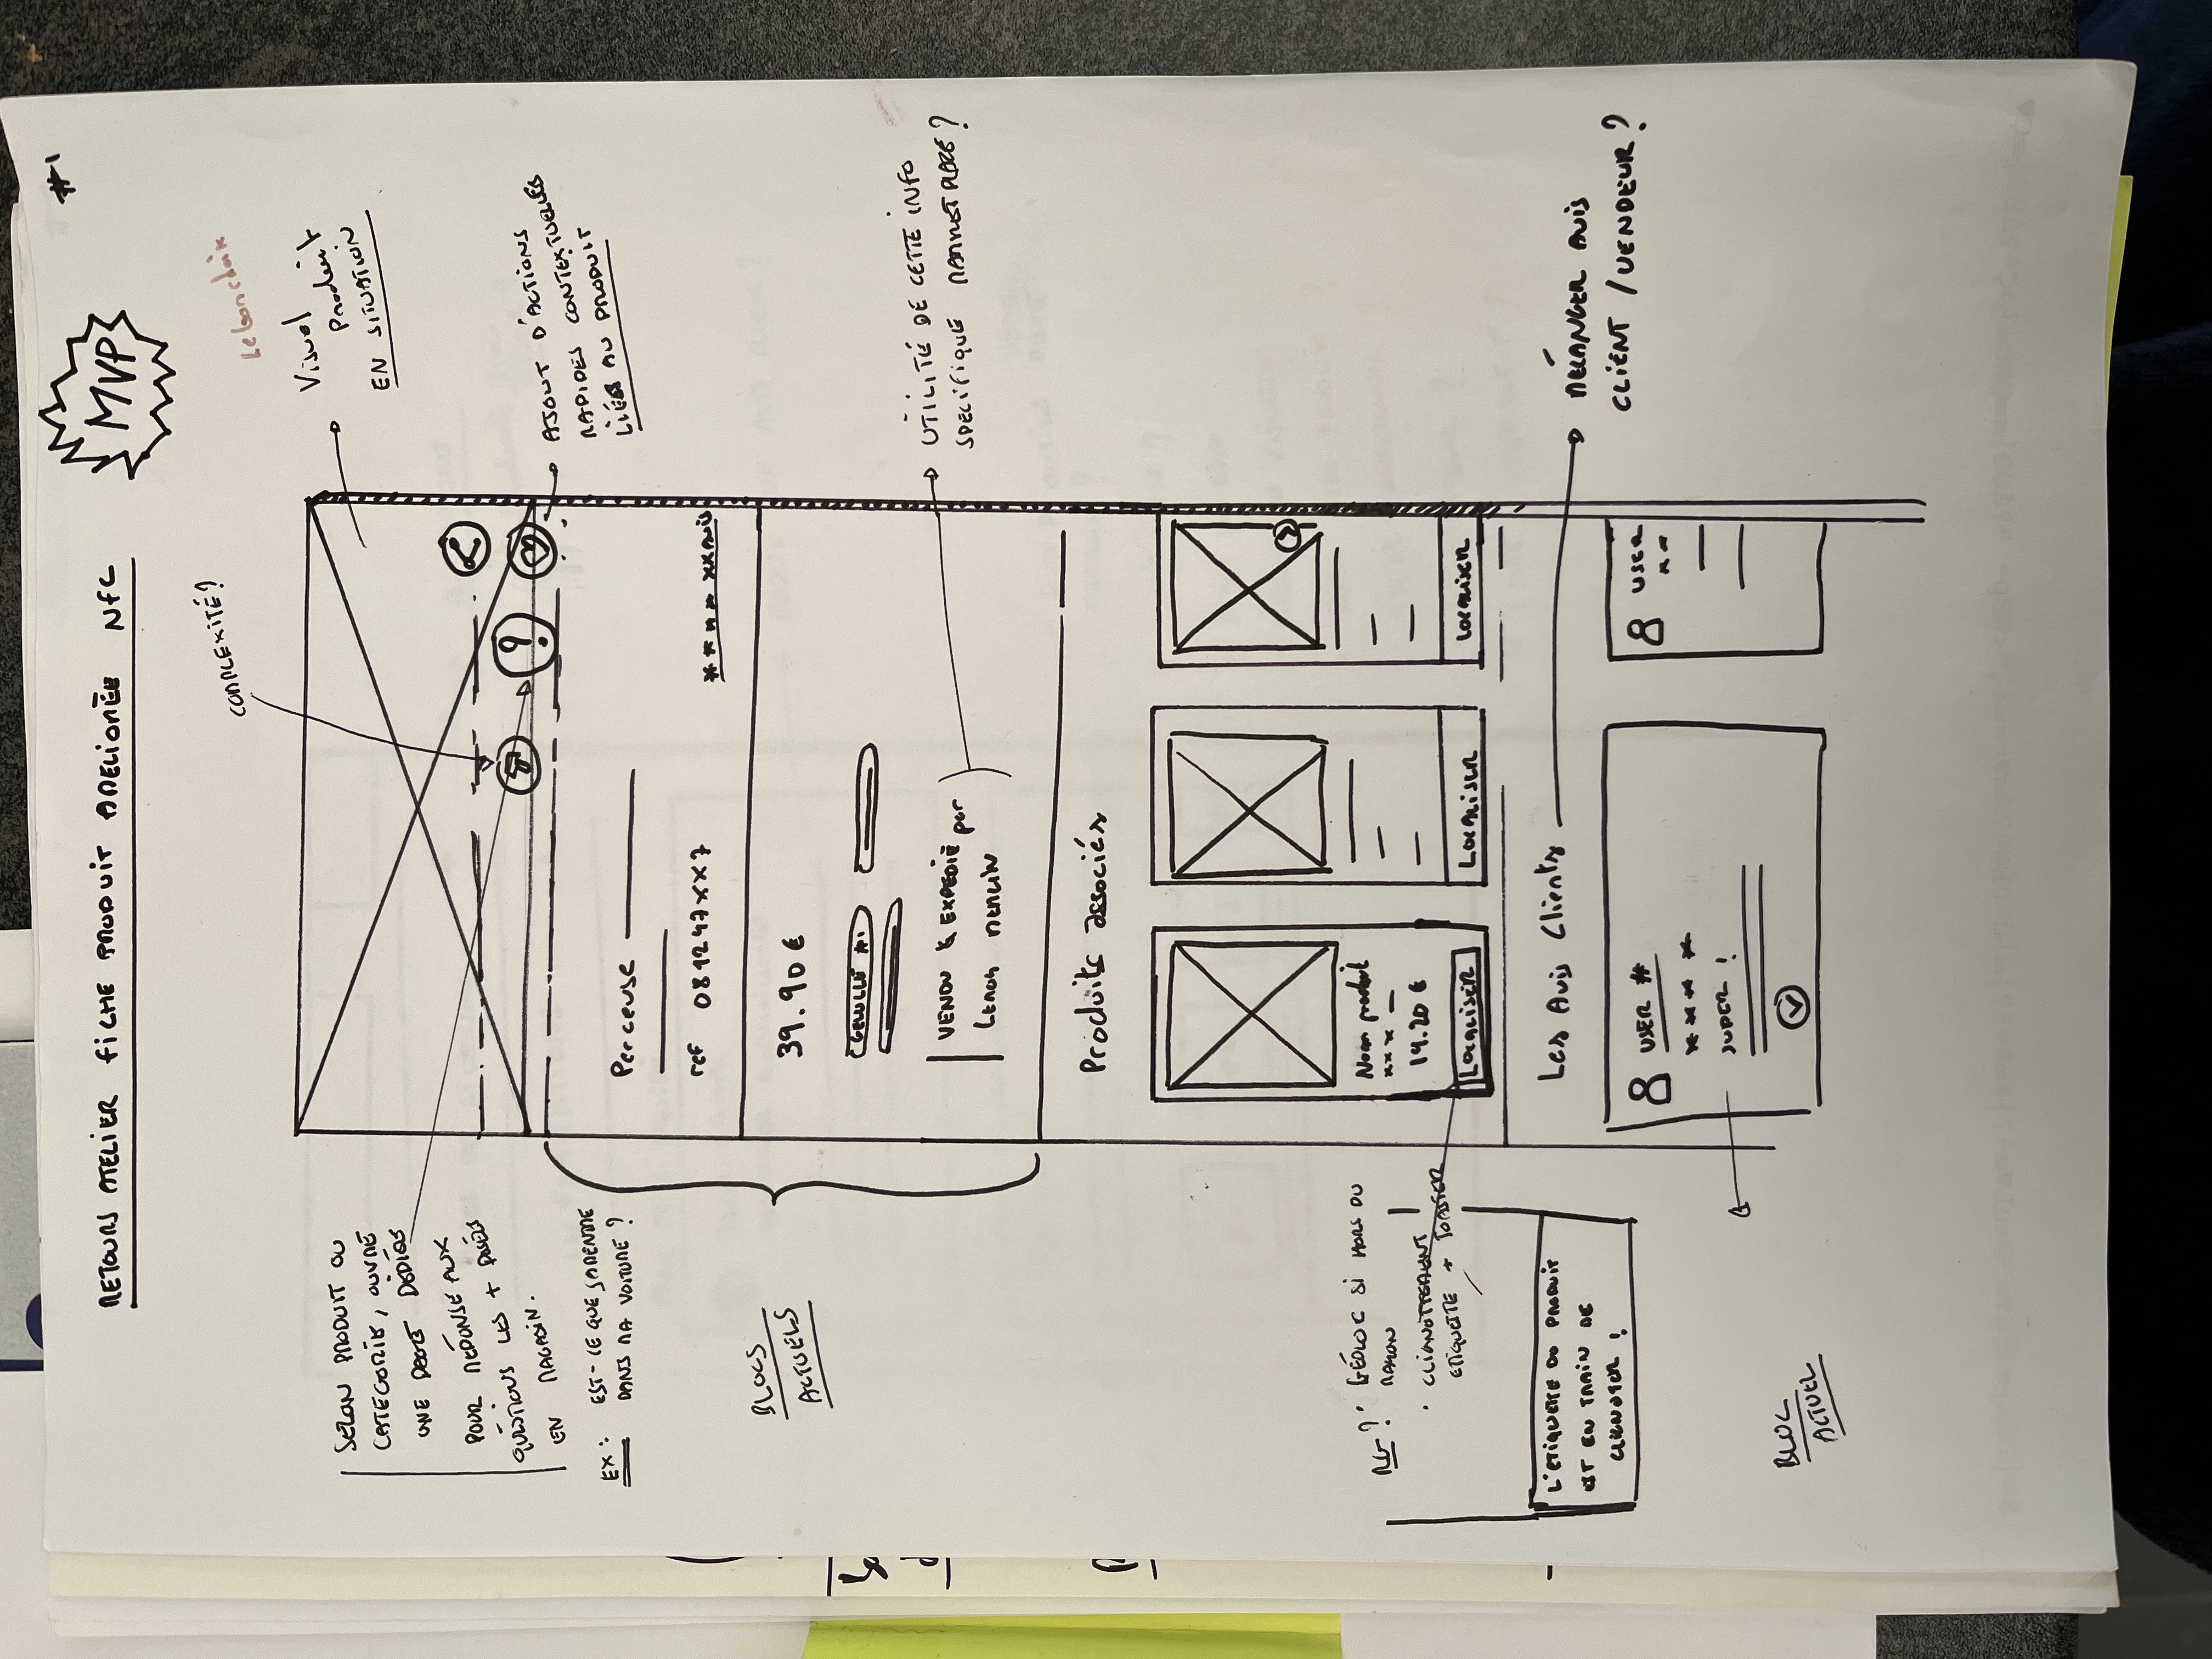 #1
RETOURS ATELIER FICHE PRODUIT AMELIORÉE NFC
MVP
COMPLEXITÉ?
Lebonchoix
Visuel
Produit
EN SITUATION
SELON PRODUIT OU
CATEGORIE, OUVRE
UNE PAGE DÉDIÉE
POUR RÉPONSE AUX
QUESTIONS LES + POSÉES
EN MAGASIN.
EX: EST-CE QUE ÇA RENTRE
DANS MA VOITURE ?
?
AJOUT D'ACTIONS
RAPIDES CONTEXTUELLES
LIÉES AU PRODUIT
Perceuse
ref 081247xx7
**** XX AVIS
BLOCS
ACTUELS
39.90 €
GELULLE #1
VENDU & EXPEDIÉ par
LEROY MERLIN
UTILITÉ DE CETTE INFO
SPECIFIQUE MARKETPLACE ?
Produits associés
Nom produit
xxx
19.20 €
LOCALISER
LOCALISER
LOCALISER
RG ? · GÉOLOC SI HORS DU
RAYON
· CLIGNOTTEMENT
ETIQUETTE + TOASTER
L'ETIQUETTE DU PRODUIT
EST EN TRAIN DE
CLIGNOTER !
Les Avis Clients
MÉLANGER AVIS
CLIENT / VENDEUR ?
USER #
****
SUPER !
USER
**
BLOC
ACTUEL